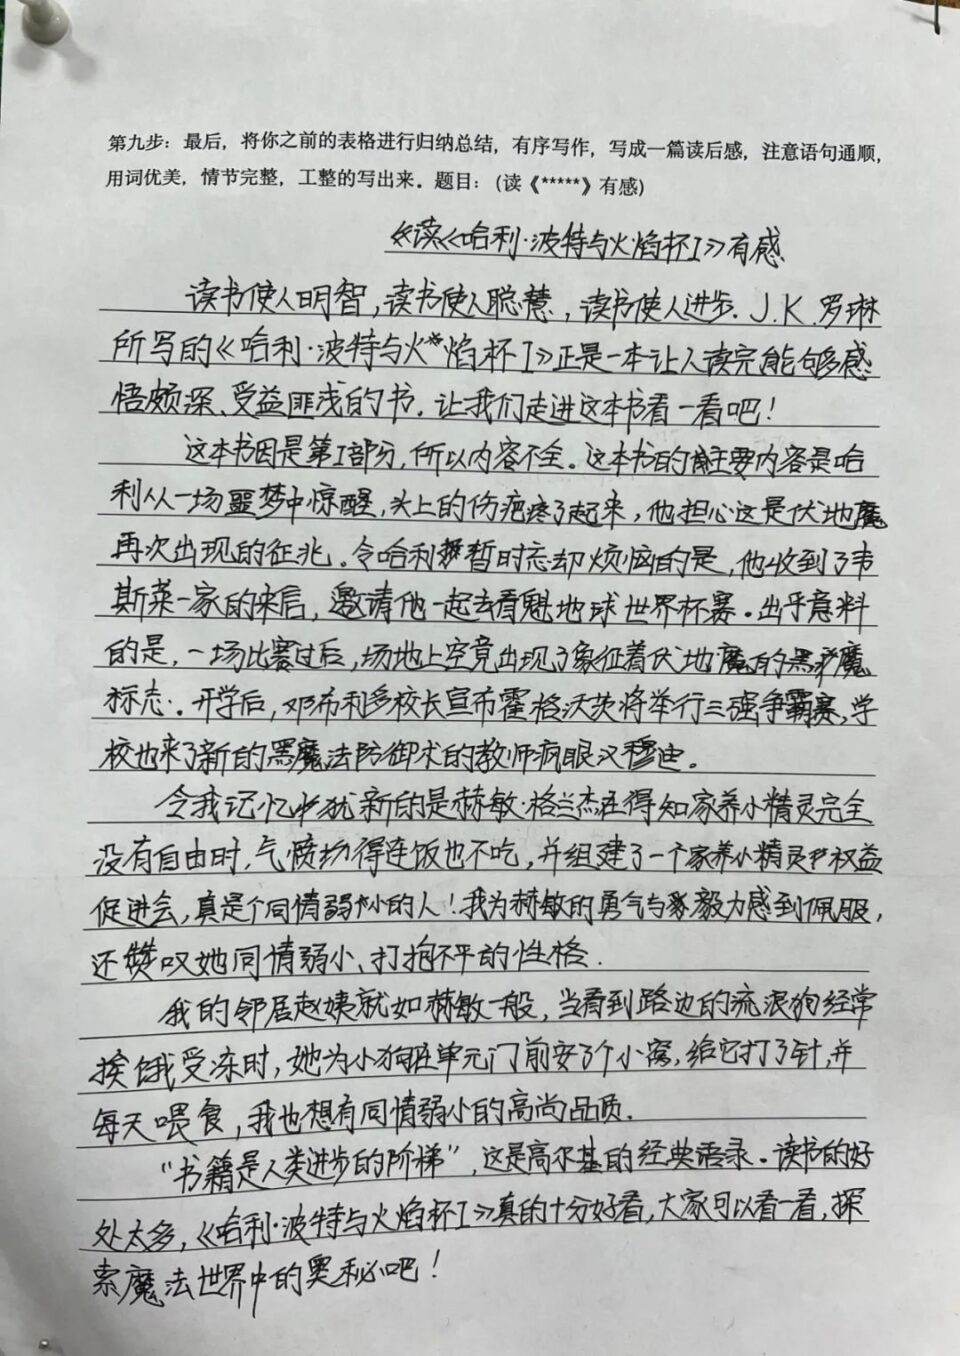 第九步：最后，将你之前的表格进行归纳总结，有序写作，写成一篇读后感，注意语句通顺，
用词优美，情节完整，工整的写出来。题目：(读《*****》有感)
《读《哈利·波特与火焰杯I》有感
读书使人明智，读书使人聪慧，读书使人进步. J.K.罗琳
所写的《哈利·波特与火焰杯I》正是一本让人读完能够感
悟颇深、受益匪浅的书. 让我们走进这本书看一看吧！
这本书因是第I部分，所以内容不全。这本书的主要内容是哈
利从一场噩梦中惊醒，头上的伤疤疼了起来，他担心这是伏地魔
再次出现的征兆。令哈利暂时忘却烦恼的是，他收到了韦
斯莱一家的来信，邀请他一起去看魁地球世界杯赛。出乎意料
的是，一场比赛过后，场地上空竟出现了象征着伏地魔的黑魔
标志. 开学后，邓布利多校长宣布霍格沃茨将举行三强争霸赛，学
校也来了新的黑魔法防御术的教师疯眼汉穆迪。
令我记忆犹新的是赫敏·格兰杰在得知家养小精灵完全
没有自由时，气愤地得连饭也不吃，并组建了一个家养小精灵权益
促进会，真是个同情弱小的人！我为赫敏的勇气与毅力感到佩服，
还赞叹她同情弱小、打抱不平的性格.
我的邻居赵姨就如赫敏一般，当看到路边的流浪狗经常
挨饿受冻时，她为小狗在单元门前安了个小窝，给它打了针，并
每天喂食，我也想有同情弱小的高尚品质.
“书籍是人类进步的阶梯”，这是高尔基的经典语录。读书的好
处太多，《哈利·波特与火焰杯I》真的十分好看，大家可以看一看，探
索魔法世界中的奥秘吧！